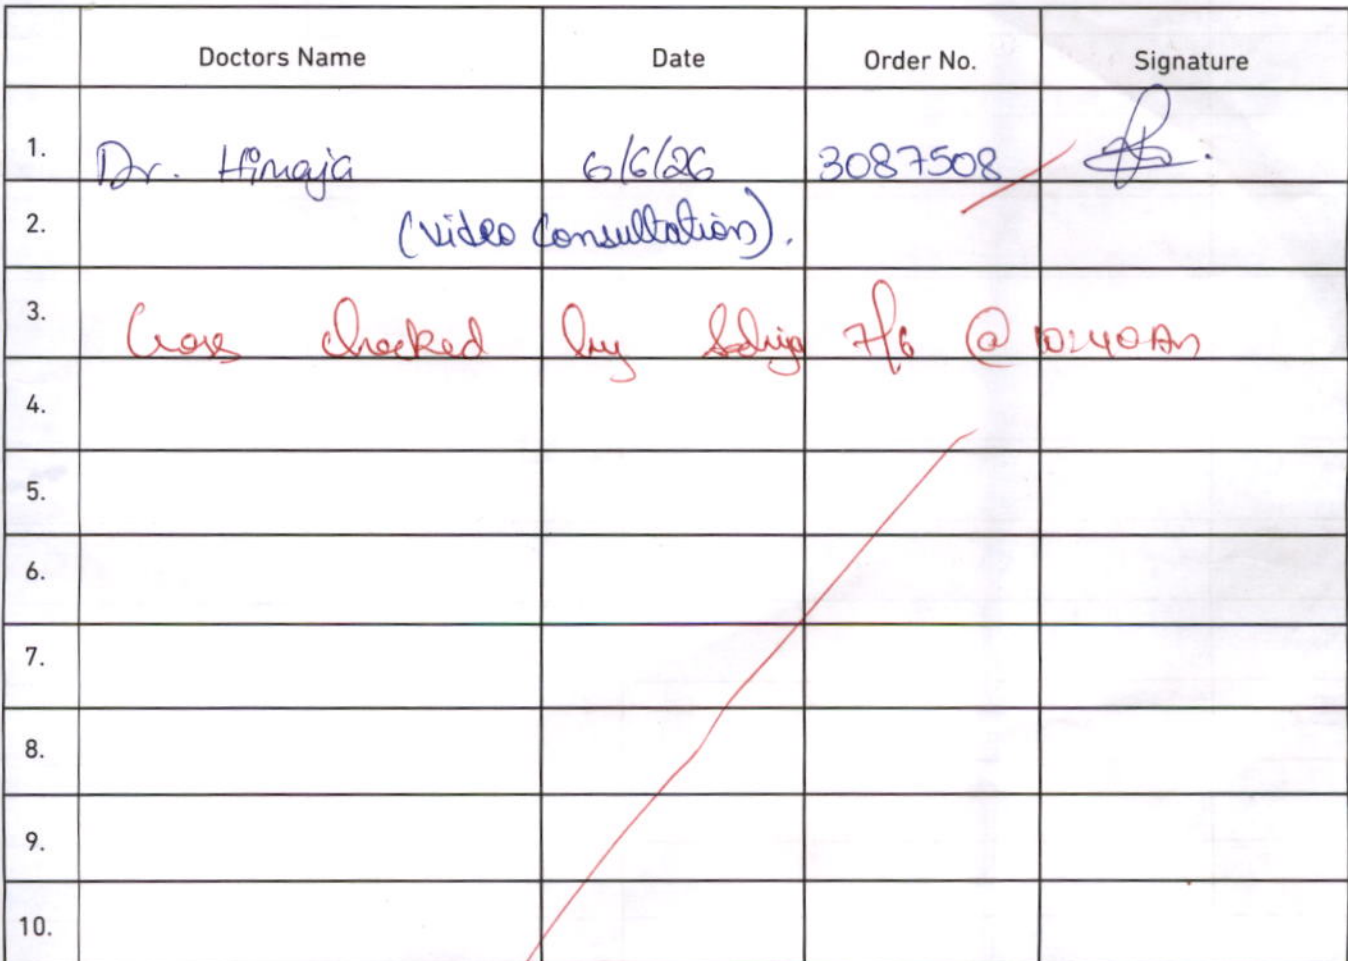 Doctors Name Date Order No. Signature
1. Dr. Himaja 6/6/26 3087508
2. (video consultation).
3. Cross checked by 7/6 @ 10:40AM
4.
5.
6.
7.
8.
9.
10.